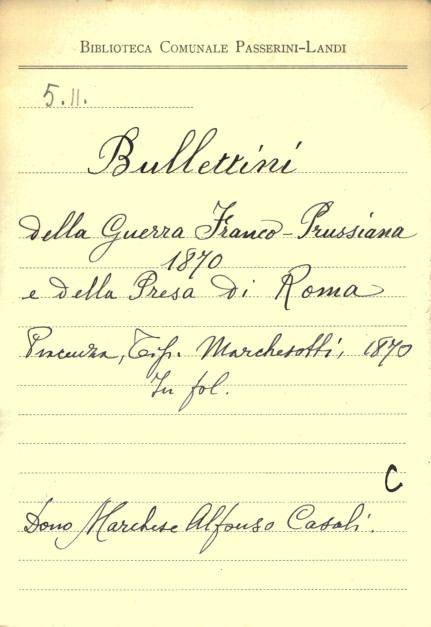 BIBLIOTECA COMUNALE PASSERINI-LANDI
5.II.
Bullettini
della Guerra Franco-Prussiana
1870
e della Presa di Roma
Piacenza, Tip. Marchesotti, 1870
In fol.
C
Dono Marchese Alfonso Casali.